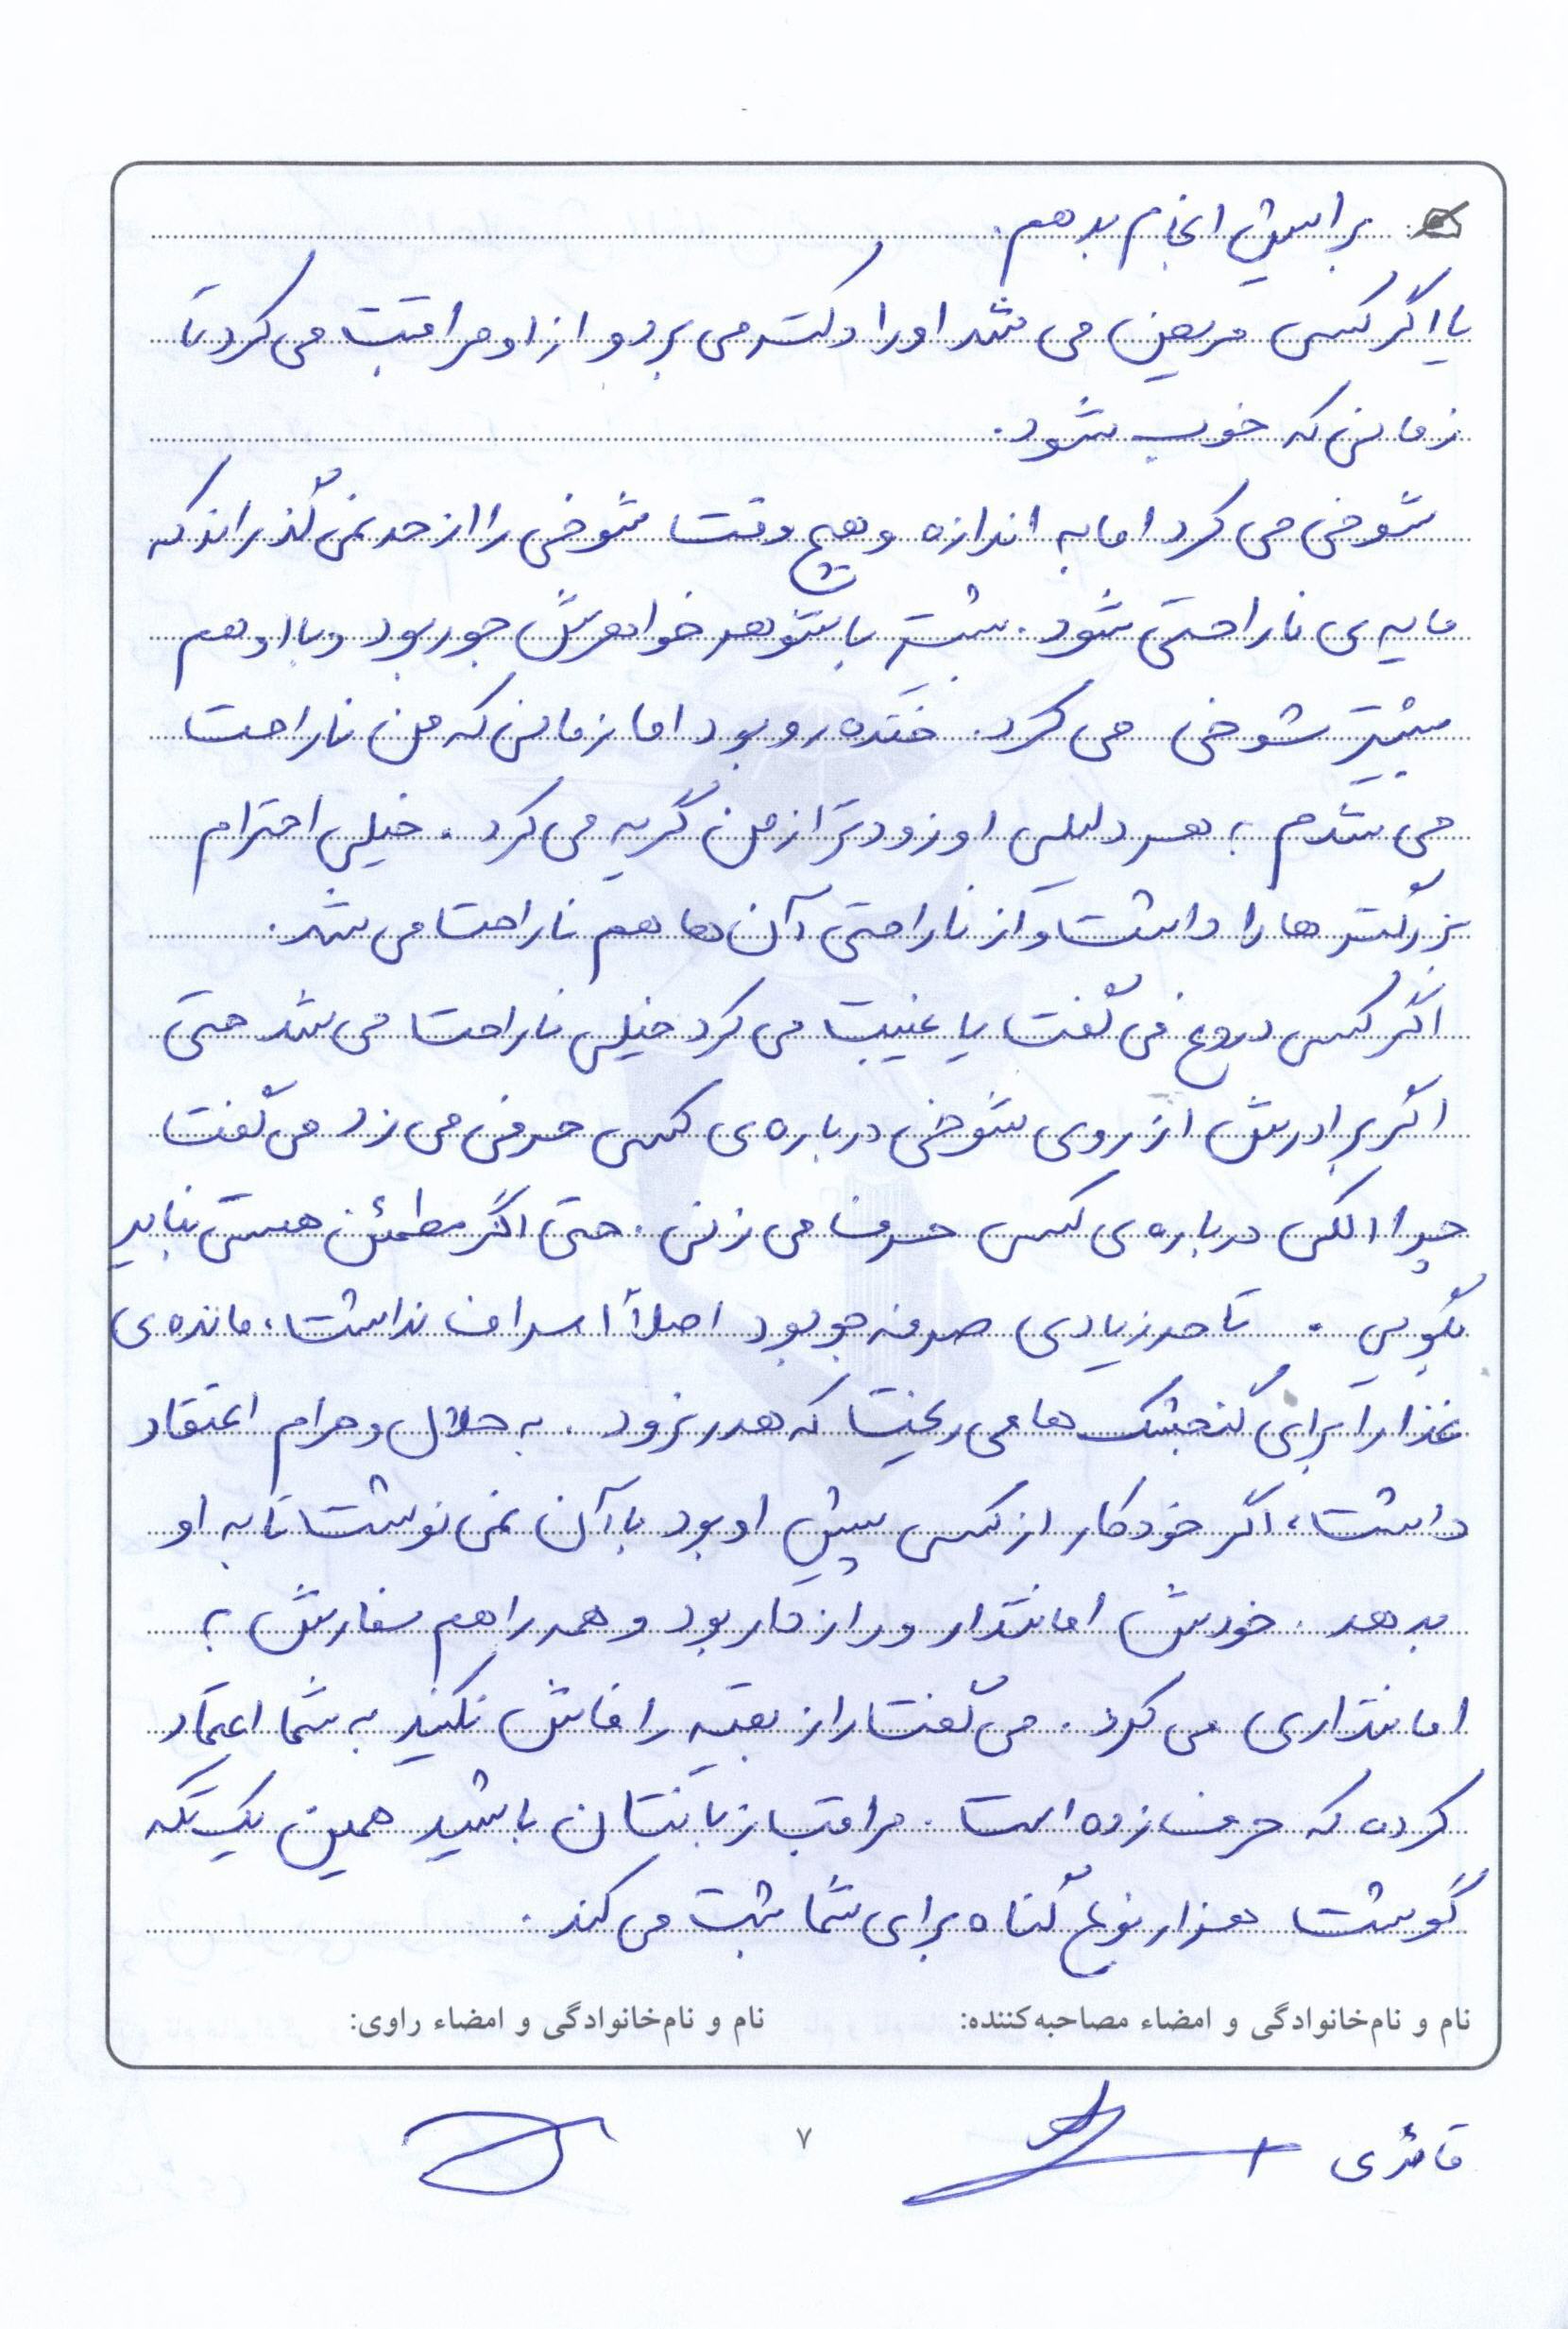 برایش انجام بدهم.
یا اگر کسی مریض می شد او را دکتر می برد و از او مراقبت می کرد تا
زمانی که خوب شود.
شوخی می کرد اما به اندازه و هیچ وقت شوخی را از حد نمی گذراند که
مایه ی ناراحتی شود. بیشتر با شوهر خواهرش جور بود و با او هم
بیشتر شوخی می کرد. خنده رو بود اما زمانی که من ناراحت
می شدم به هر دلیلی او زودتر از من گریه می کرد. خیلی احترام
بزرگتر ها را داشت و از ناراحتی آن ها هم ناراحت می شد.
اگر کسی دروغ می گفت یا غیبت می کرد خیلی ناراحت می شد حتی
اگر برادرش از روی شوخی درباره ی کسی حرفی می زد می گفت
چرا الکی درباره ی کسی حرف می زنی. حتی اگر مطمئن هستی نباید
بگویی. تا حد زیادی صرفه جو بود اصلاً اسراف نداشت، مانده ی
غذا را برای گنجشک ها می ریخت که هدر نرود. به حلال و حرام اعتقاد
داشت، اگر خودکار از کسی پیش او بود با آن نمی نوشت تا به او
بدهد. خودش امانتدار و رازدار بود و همه را هم سفارش به
امانتداری می کرد. می گفت راز بقیه را فاش نکنید به شما اعتماد
کرده که حرف زده است. مراقب زبانتان باشید همین یک تکه
گوشت هزار نوع گناه برای شما ثبت می کند.
نام و نام‌خانوادگی و امضاء مصاحبه‌کننده: نام و نام‌خانوادگی و امضاء راوی:
قائدی
۷